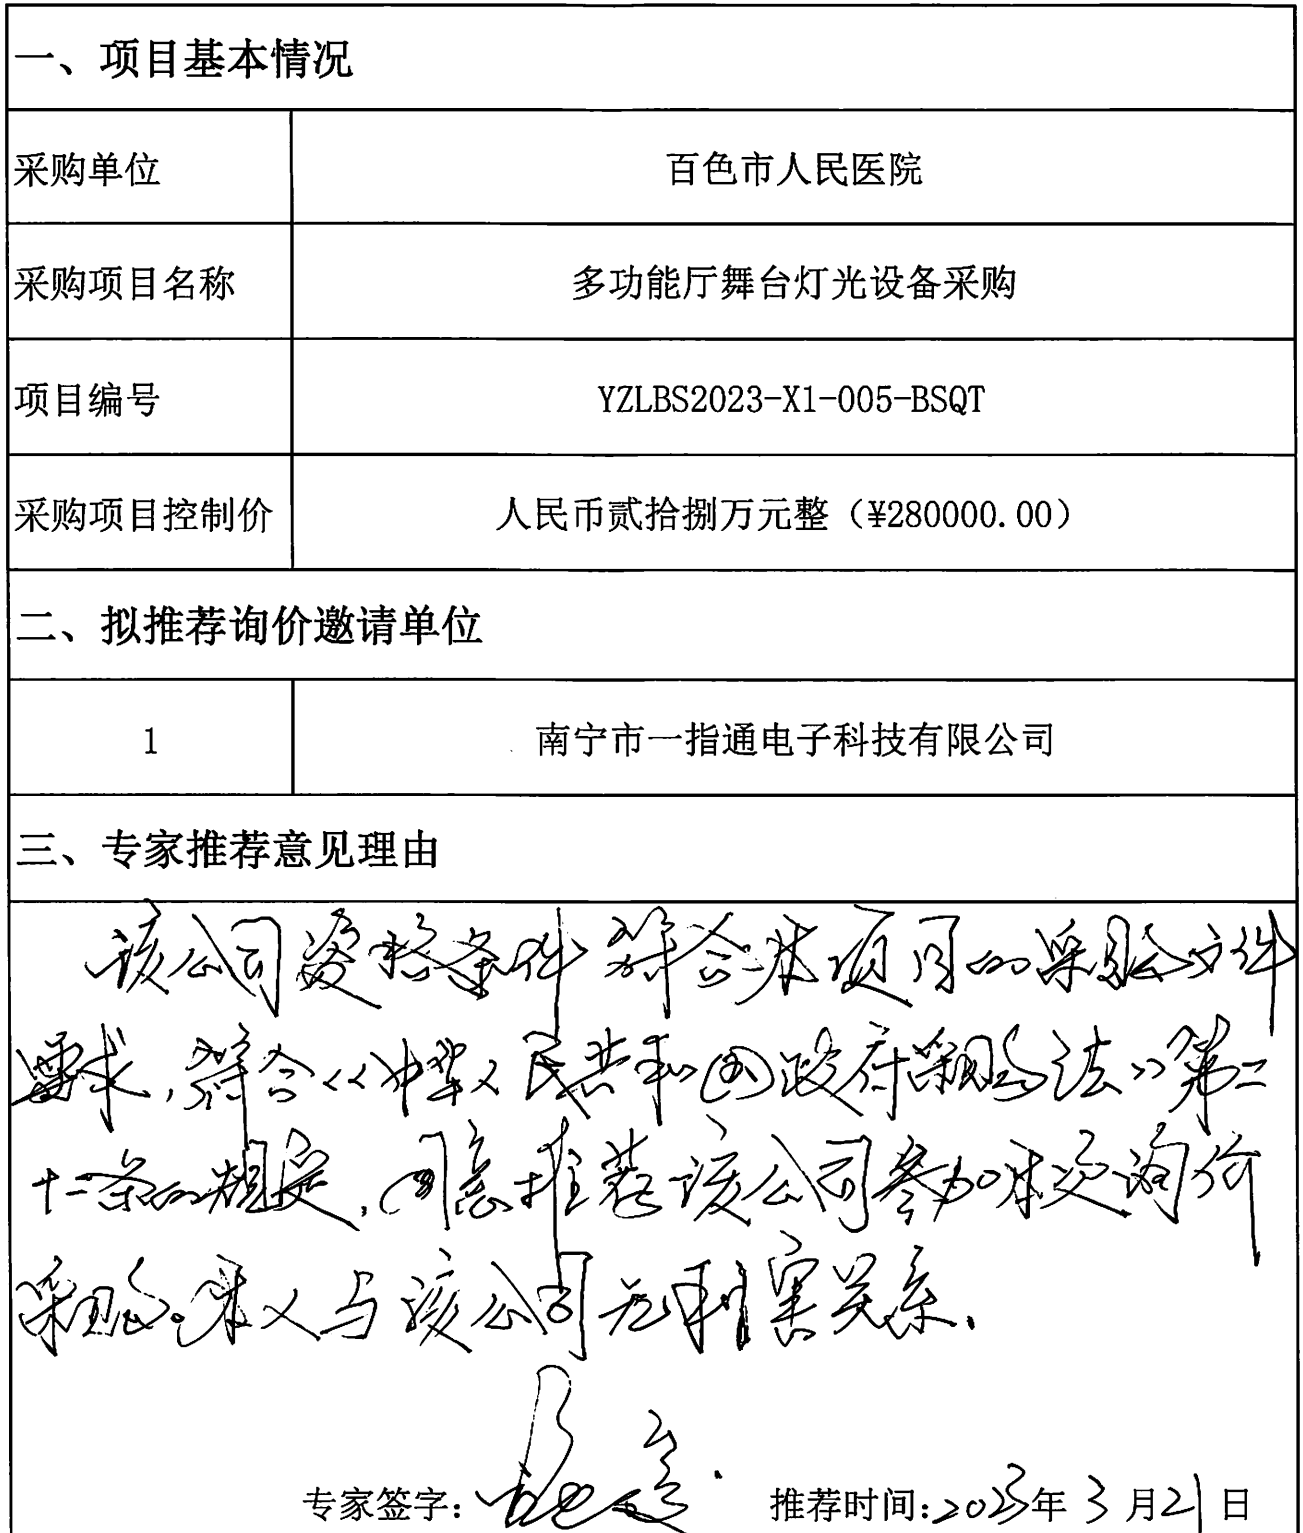 一、项目基本情况
采购单位 百色市人民医院
采购项目名称 多功能厅舞台灯光设备采购
项目编号 YZLBS2023-X1-005-BSQT
采购项目控制价 人民币贰拾捌万元整（¥280000.00）
二、拟推荐询价邀请单位
1 南宁市一指通电子科技有限公司
三、专家推荐意见理由
该公司资格条件符合本项目的采购文件
要求，符合《中华人民共和国政府采购法》第二
十二条的规定，同意推荐该公司参加本次询价
采购。本人与该公司无利害关系。
专家签字： 推荐时间：2023年3月21日